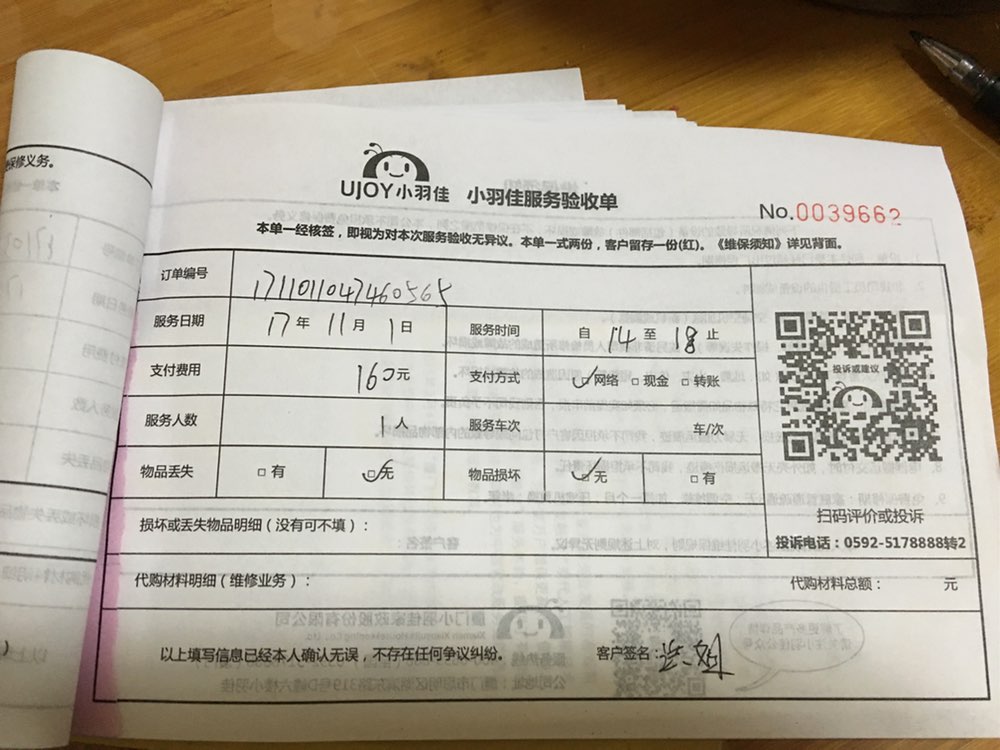 保修义务。
UJOY小羽佳 小羽佳服务验收单
No.0039662
本单一经核签，即视为对本次服务验收无异议。本单一式两份，客户留存一份(红)。《维保须知》详见背面。
订单编号 1711011047460565
服务日期 17年11月1日 服务时间 自14至18止
投诉或建议
支付费用 160元 支付方式 ☑网络 □现金 □转账
服务人数 1人 服务车次 车/次
物品丢失 □有 ☑无 物品损坏 ☑无 □有
扫码评价或投诉
损坏或丢失物品明细（没有可不填）：
投诉电话：0592-5178888转2
代购材料明细（维修业务）： 代购材料总额： 元
以上填写信息已经本人确认无误，不存在任何争议纠纷。 客户签名：